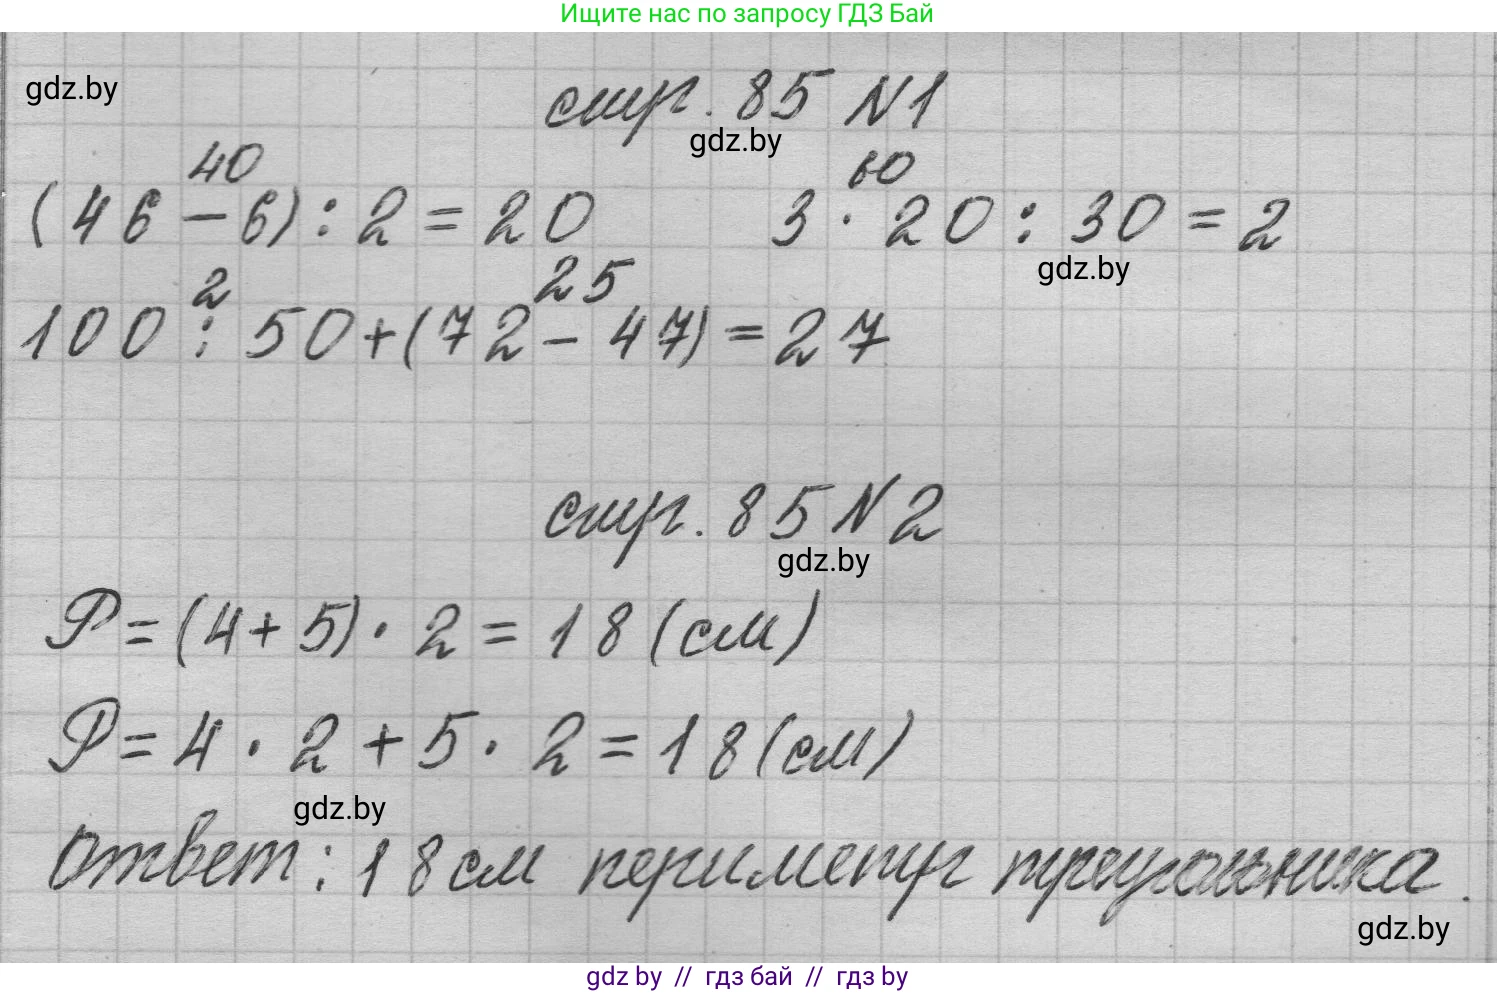 Ищите нас по запросу ГДЗ Бай
gdz.by
стр. 85 N1
gdz.by
40
60
(46-6):2=20 3·20:30=2
gdz.by
2 25
100:50+(72-47)=27
стр. 85 N2
gdz.by
P=(4+5)·2=18(см)
P=4·2+5·2=18(см)
gdz.by
Ответ: 18см периметр треугольника.
gdz.by
gdz by // гдз бай // gdz by